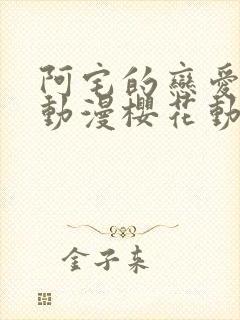 阿宅的戀愛
動漫櫻花動
金子来